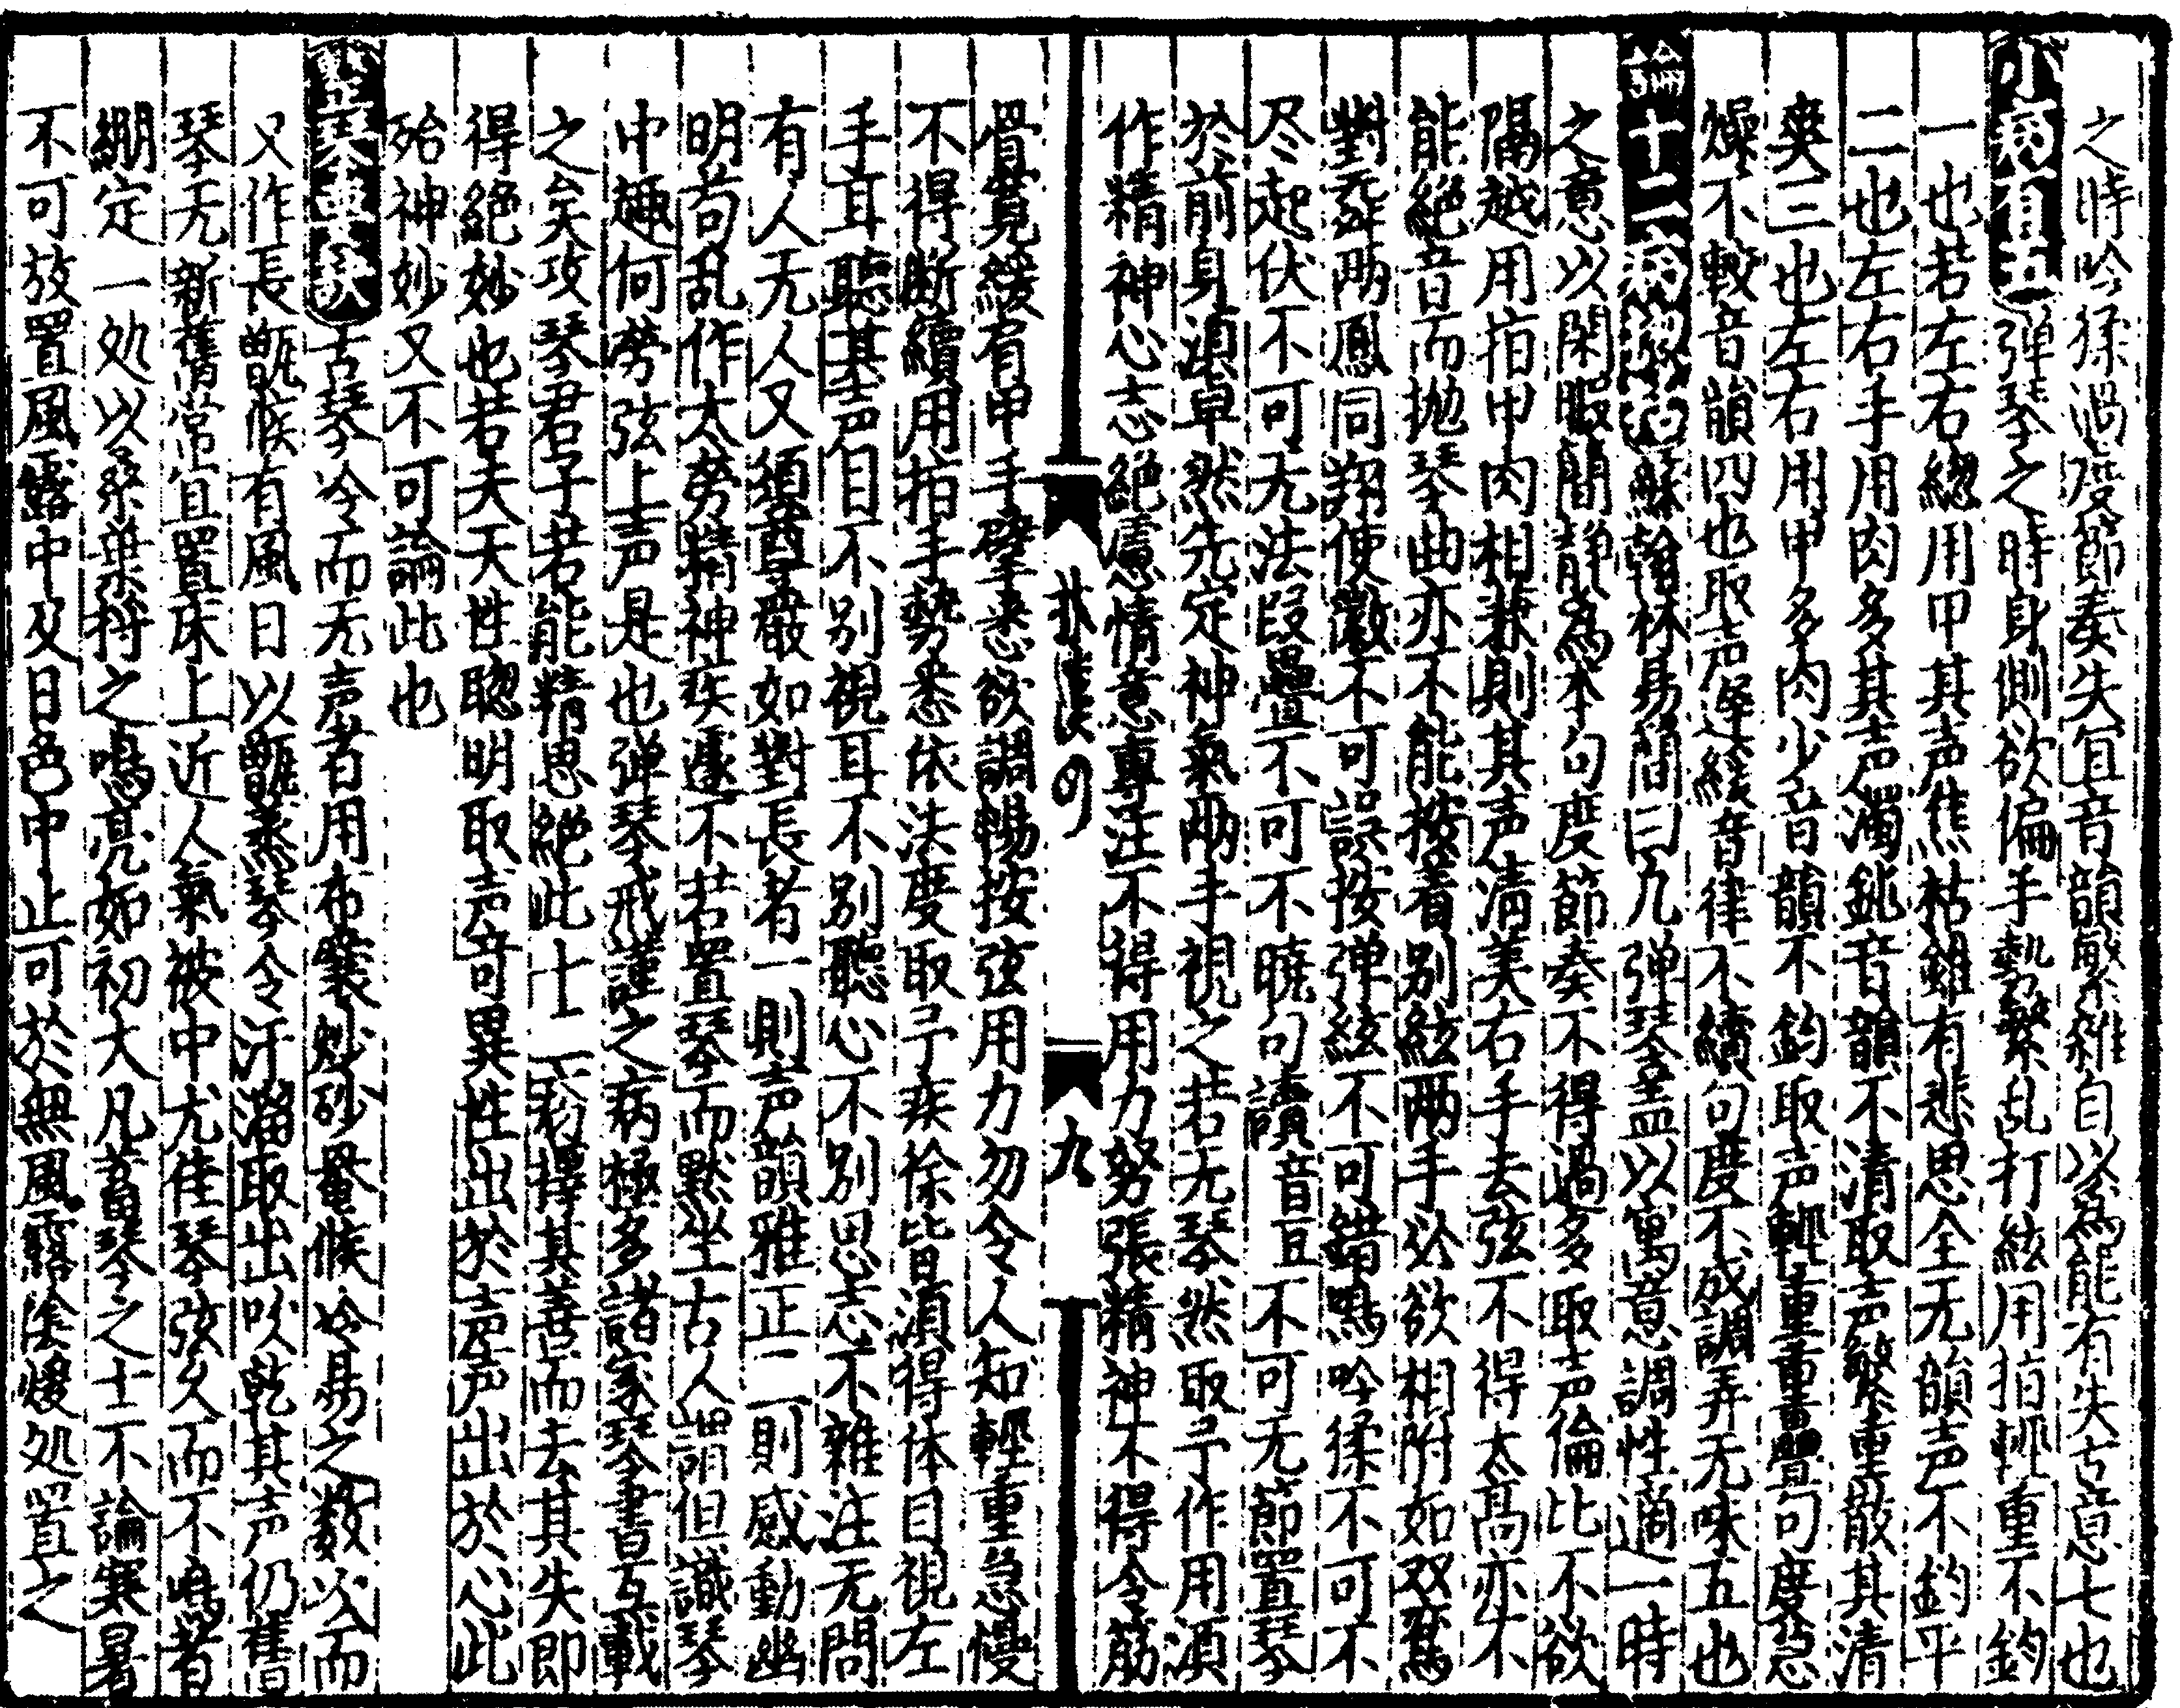 之時吟猱過度節奏失宜音韻繁雜自以爲能有失古意七也
小病有五弹琴之時身側欲偏手勢繁乱打絃用指輕重不鈞
一也若左右緫用甲其声焦枯雖有悲思全无韻声不鈞平
二也左右手用肉多其声濁鈍音韻不清取声繁重散其清
奭三也左右用甲多肉少音韻不鈞取声輕重重疊句度急
燥不較音韻四也取声遲緩音律不續句度不成調弄无味五也
論十二病 蘇翰林易簡曰凢弹琴盖以寓意調性適一時
之意以閑暇簡静爲本句度節奏不得過多取声倫比不欲
隔越用指甲肉相兼則其声清美右手去弦不得太髙亦不
能絶音而抛琴曲亦不能按着别絃两手必欲相附如双鸾
對舞两鳳同翔使激不可誤按弹絃不可錯鳴吟猱不可不
尽起伏不可无法段疊不可不曉句讀音豆不可无節置琴
於前身湏卓然先定神氣两手視之若无琴然取予作用湏
作精神心志絶慮情意專注不得用力努張精神不得令筋
琴漢四 九
骨寛緩有甲手臂悉欲調暢按弦用力勿令人知輕重急慢
不得断續用指手勢悉依法度取予疾徐皆湏得体目視左
手耳聽其声目不别視耳不别聽心不别思志不雜注无問
有人无人又須尊嚴如對長者一則声韻雅正二則感動幽
明苟乱作太勞精神疾遽不若置琴而黙坐古人謂但識琴
中趣何勞弦上声是也弹琴戒謹之病極多諸家琴書互載
之矣攻琴君子若能精思絶此十二家擇其善而去其失即
得絶妙也若夫天性聦明取声竒異性出於声声出於心此
殆神妙又不可論此也
古琴冷而无声者用布囊炒砂罨候冷易之数以次而
又作長甑候有風日以甑蒸琴令汗溜取出吹乾其声仍舊
琴无新舊常宜置床上近人氣被中尤佳琴弦久而不鳴者
綳定一処以桑葉捋之鳴亮如初大凡蓄琴之士不論寒暑
不可放置風露中及日色中止可於無風露陰煖処置之